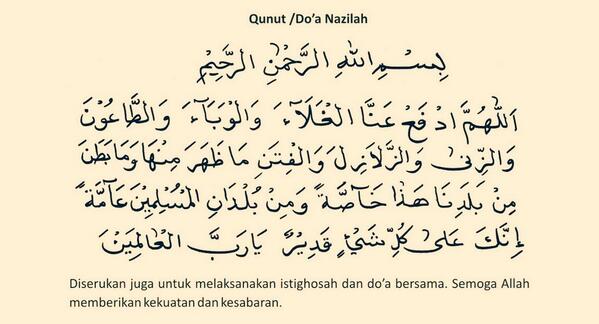 Qunut /Do’a Nazilah
بِسْمِ اللهِ الرَّحْمٰنِ الرَّحِيْمِ
اَللّٰهُمَّ ادْفَعْ عَنَّا الْغَلَآءَ وَالْوَبَآءَ وَالطَّاعُوْنَ
وَالزِّنٰى وَالزَّلَازِلَ وَالْفِتَنِ مَا ظَهَرَ مِنْهَا وَمَا بَطَنَ
مِنْ بَلَدِنَا هٰذَا خَآصَّةً وَمِنْ بُلْدَانِ الْمُسْلِمِيْنَ عَآمَّةً
إِنَّكَ عَلٰى كُلِّ شَيْءٍ قَدِيْرٌ يَا رَبَّ الْعَالَمِيْنَ
Diserukan juga untuk melaksanakan istighosah dan do’a bersama. Semoga Allah
memberikan kekuatan dan kesabaran.